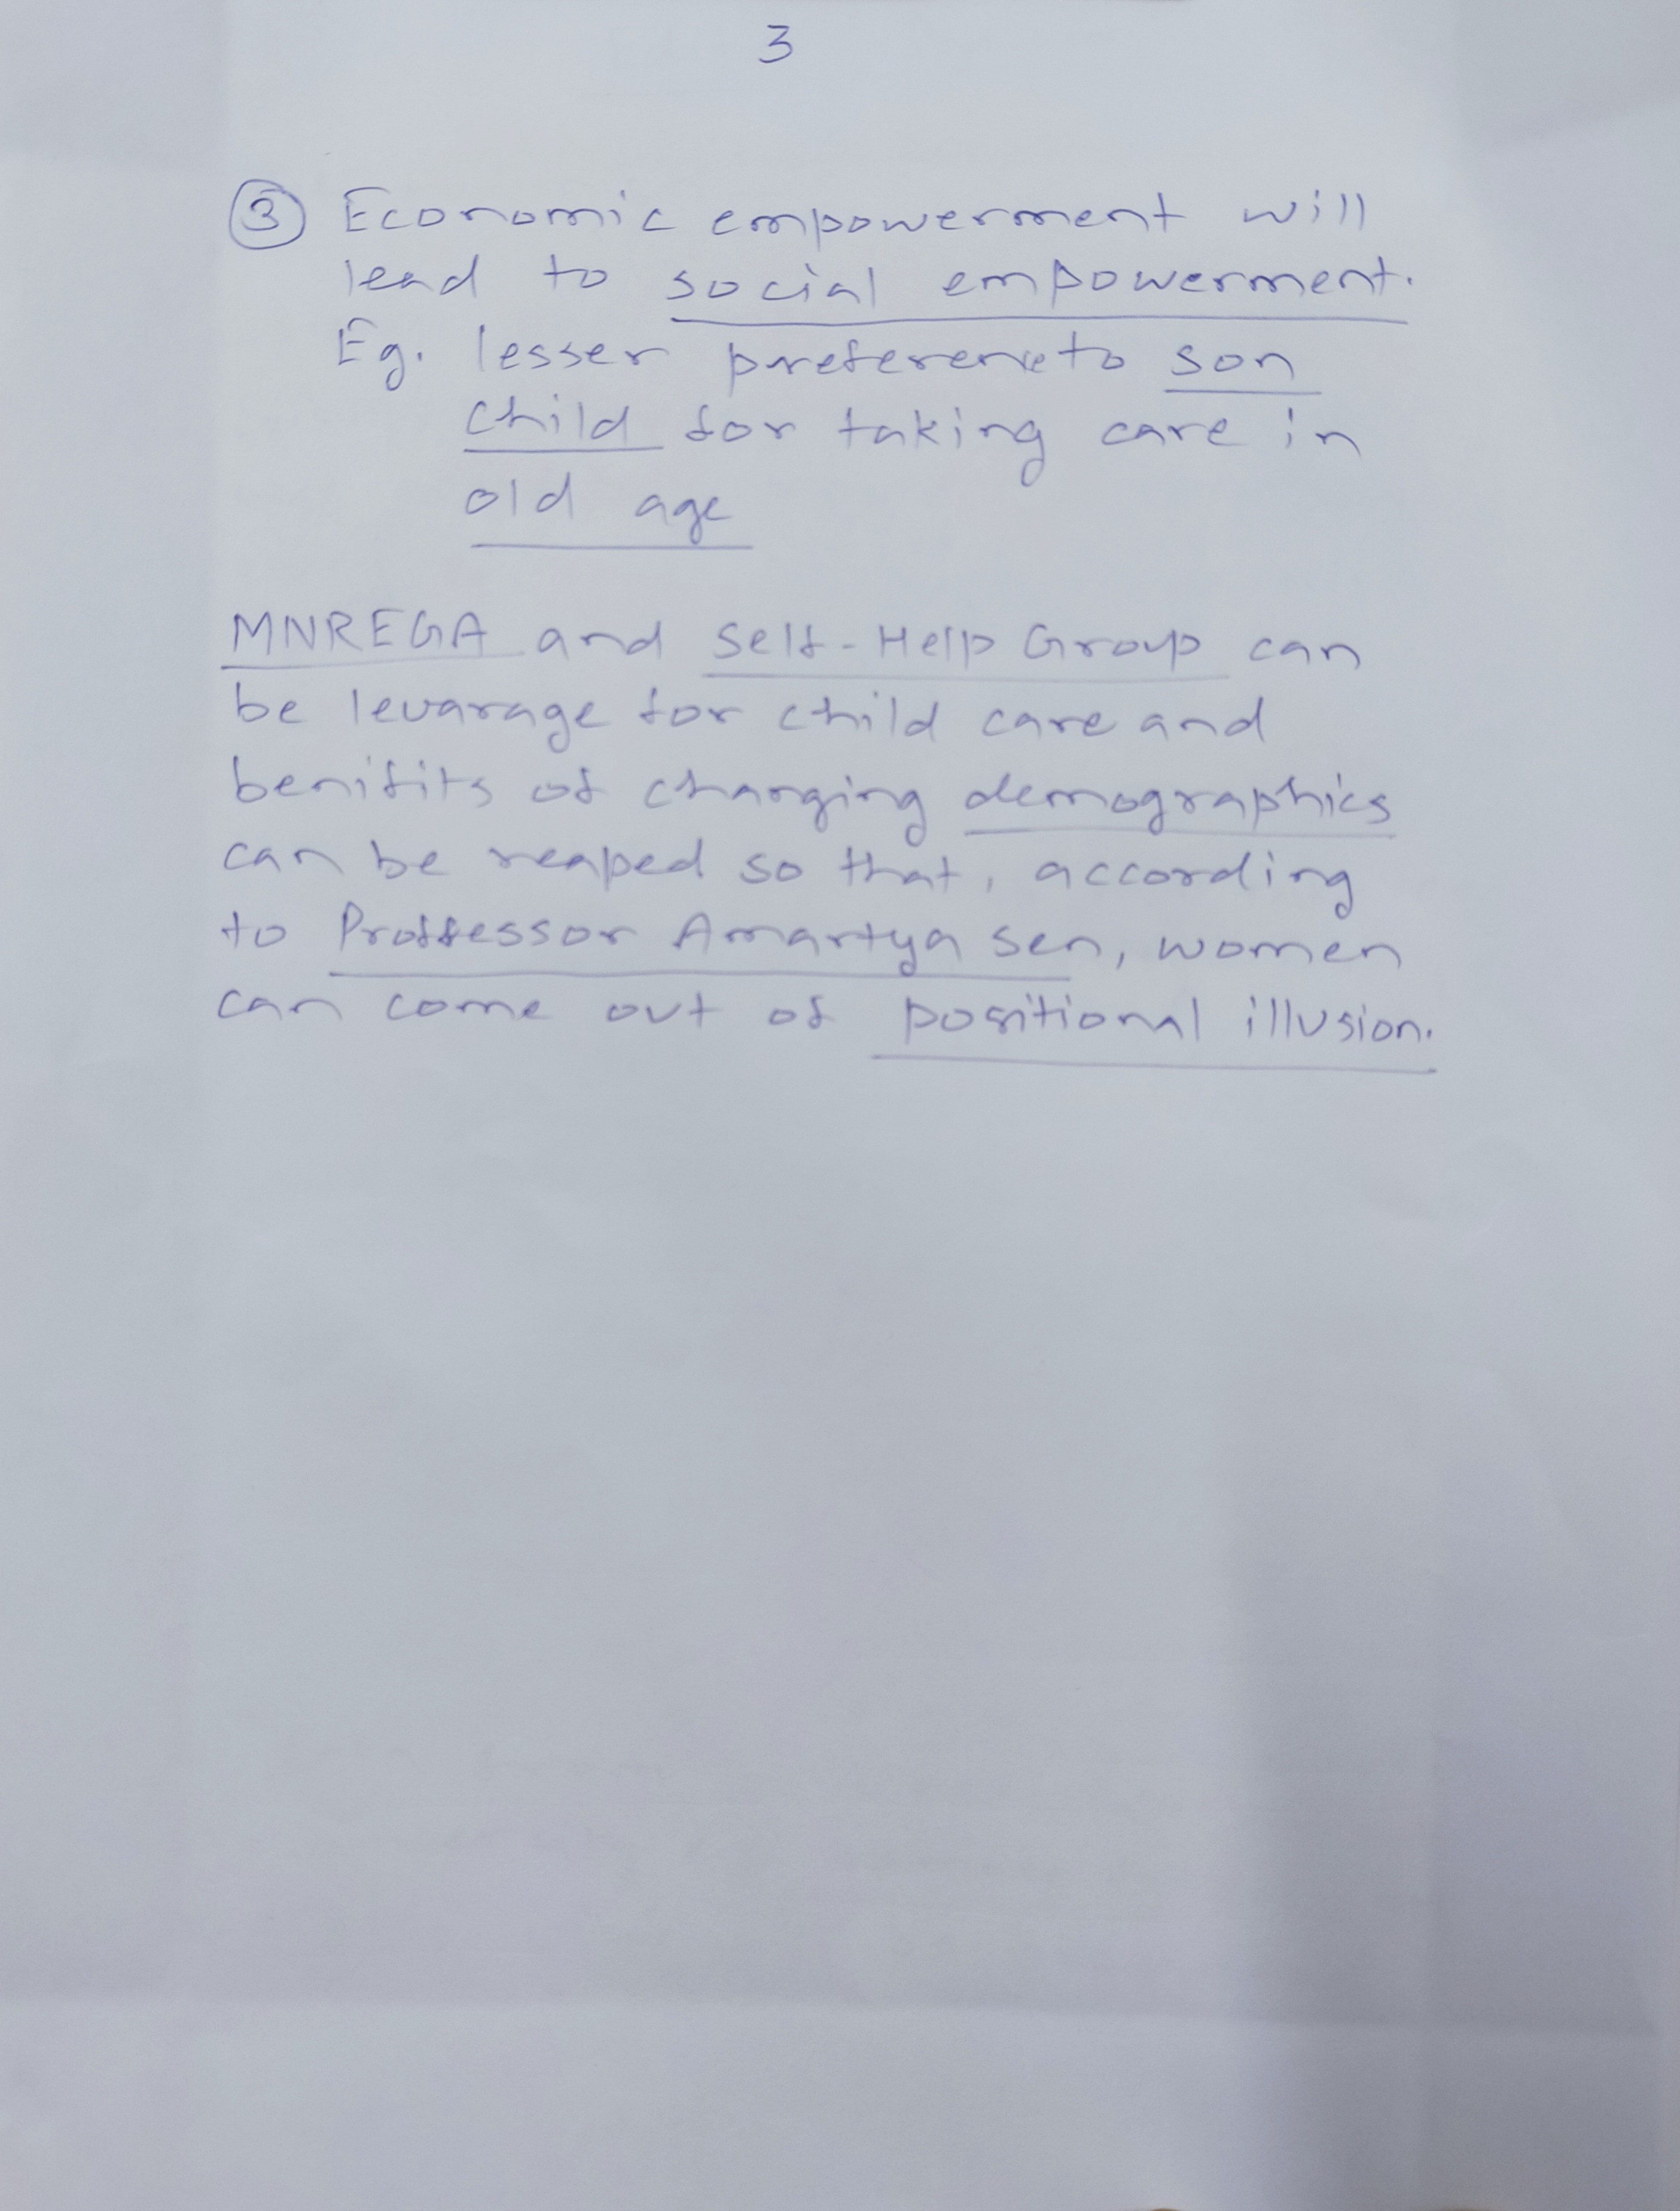 3
③ Economic empowerment will
lead to social empowerment.
Eg. lesser preference to son
child for taking care in
old age
MNREGA and Self-Help Group can
be levarage for child care and
benifits of changing demographics
can be reaped so that, according
to Proffessor Amartya sen, women
can come out of positional illusion.